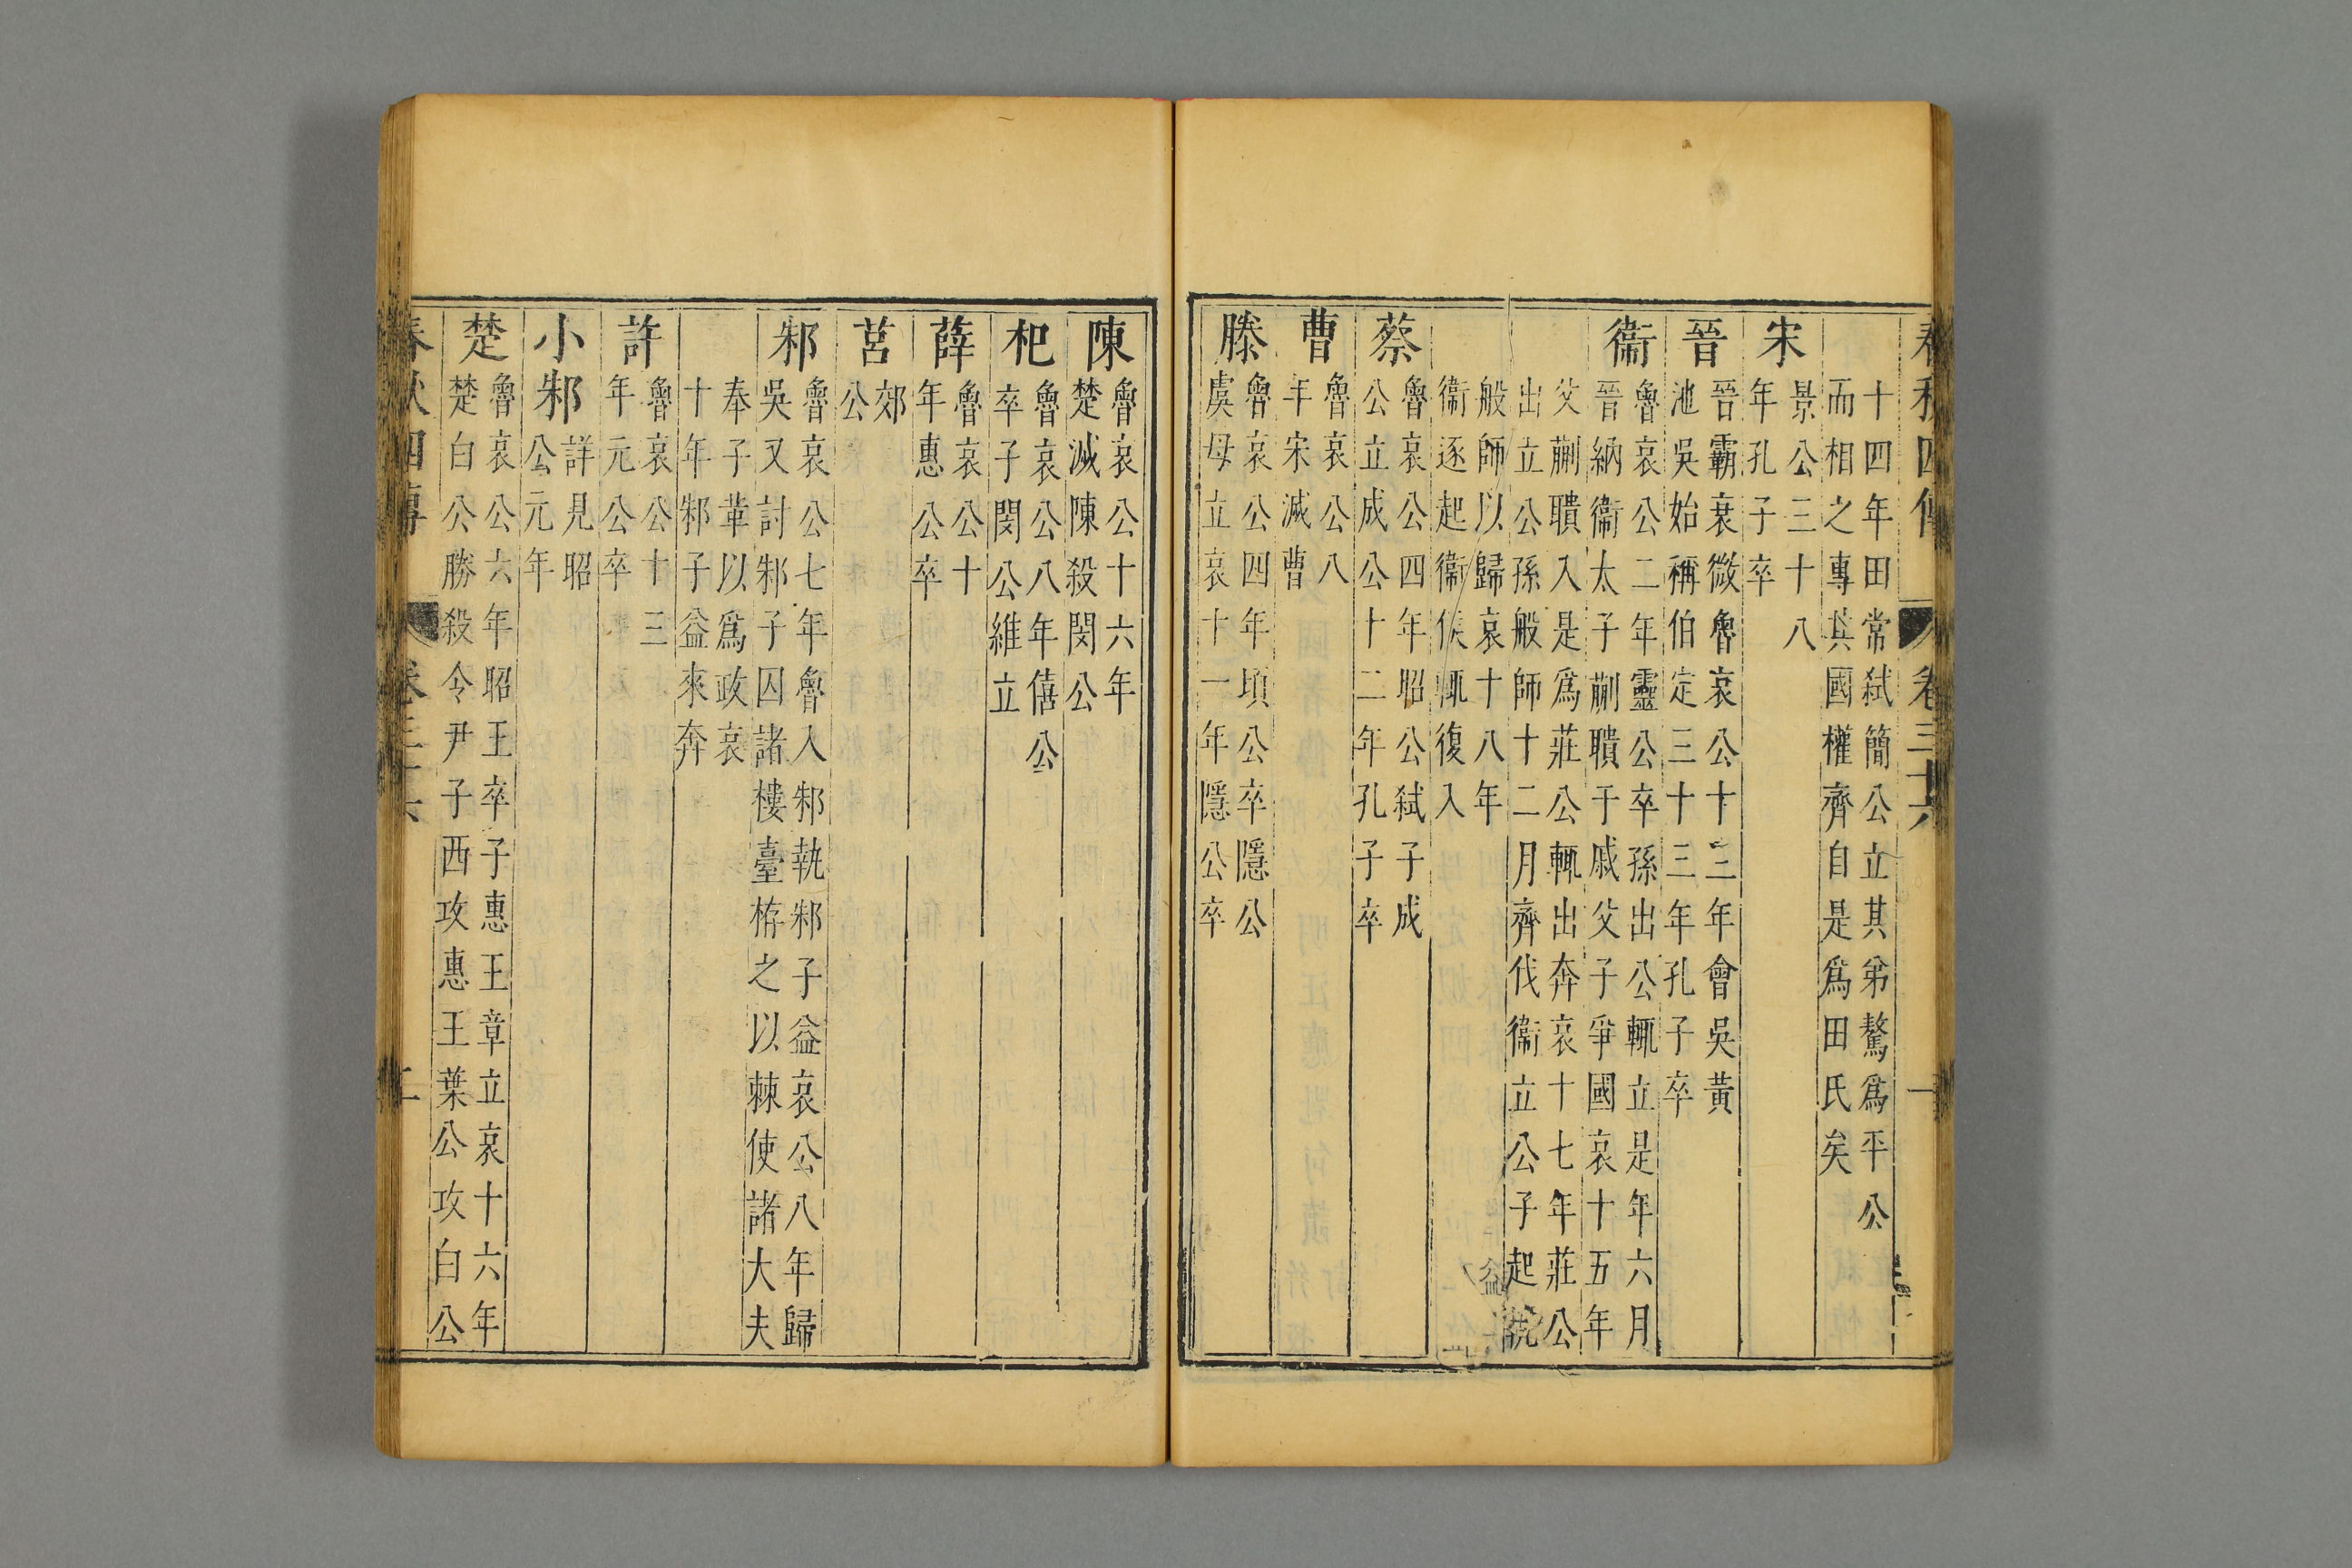 春秋四傳 卷三十六 一
十四年田常弑簡公立其弟驁爲平公
而相之專其國權齊自是爲田氏矣
宋
景公三十八
年孔子卒
晉
晉霸衰微魯哀公十三年會吳黃
池吳始稱伯定三十三年孔子卒
衞
魯哀公二年靈公卒孫出公輒立是年六月
晉納衞太子蒯聵于戚父子爭國哀十五年
父蒯聵入是爲莊公輒出奔哀十七年莊公
出立公孫般師十二月齊伐衞立公子起
般師以歸哀十八年
衞逐起衞侯輒復入
蔡
魯哀公四年昭公弑子成
公立成公十二年孔子卒
曹
魯哀公八
年宋滅曹
滕
魯哀公四年頃公卒隱公
虞母立哀十一年隱公卒
陳
魯哀公十六年
楚滅陳殺閔公
杞
魯哀公八年僖公
卒子閔公維立
薛
魯哀公十
年惠公卒
莒
郊
公
邾
魯哀公七年魯入邾執邾子益哀公八年歸
吳又討邾子囚諸樓臺栫之以棘使諸大夫
奉子革以爲政哀
十年邾子益來奔
許
魯哀公十三
年元公卒
小邾
詳見昭
公元年
楚
魯哀公六年昭王卒子惠王章立哀十六年
楚白公勝殺令尹子西攻惠王葉公攻白公
春秋四傳 卷三十六 二